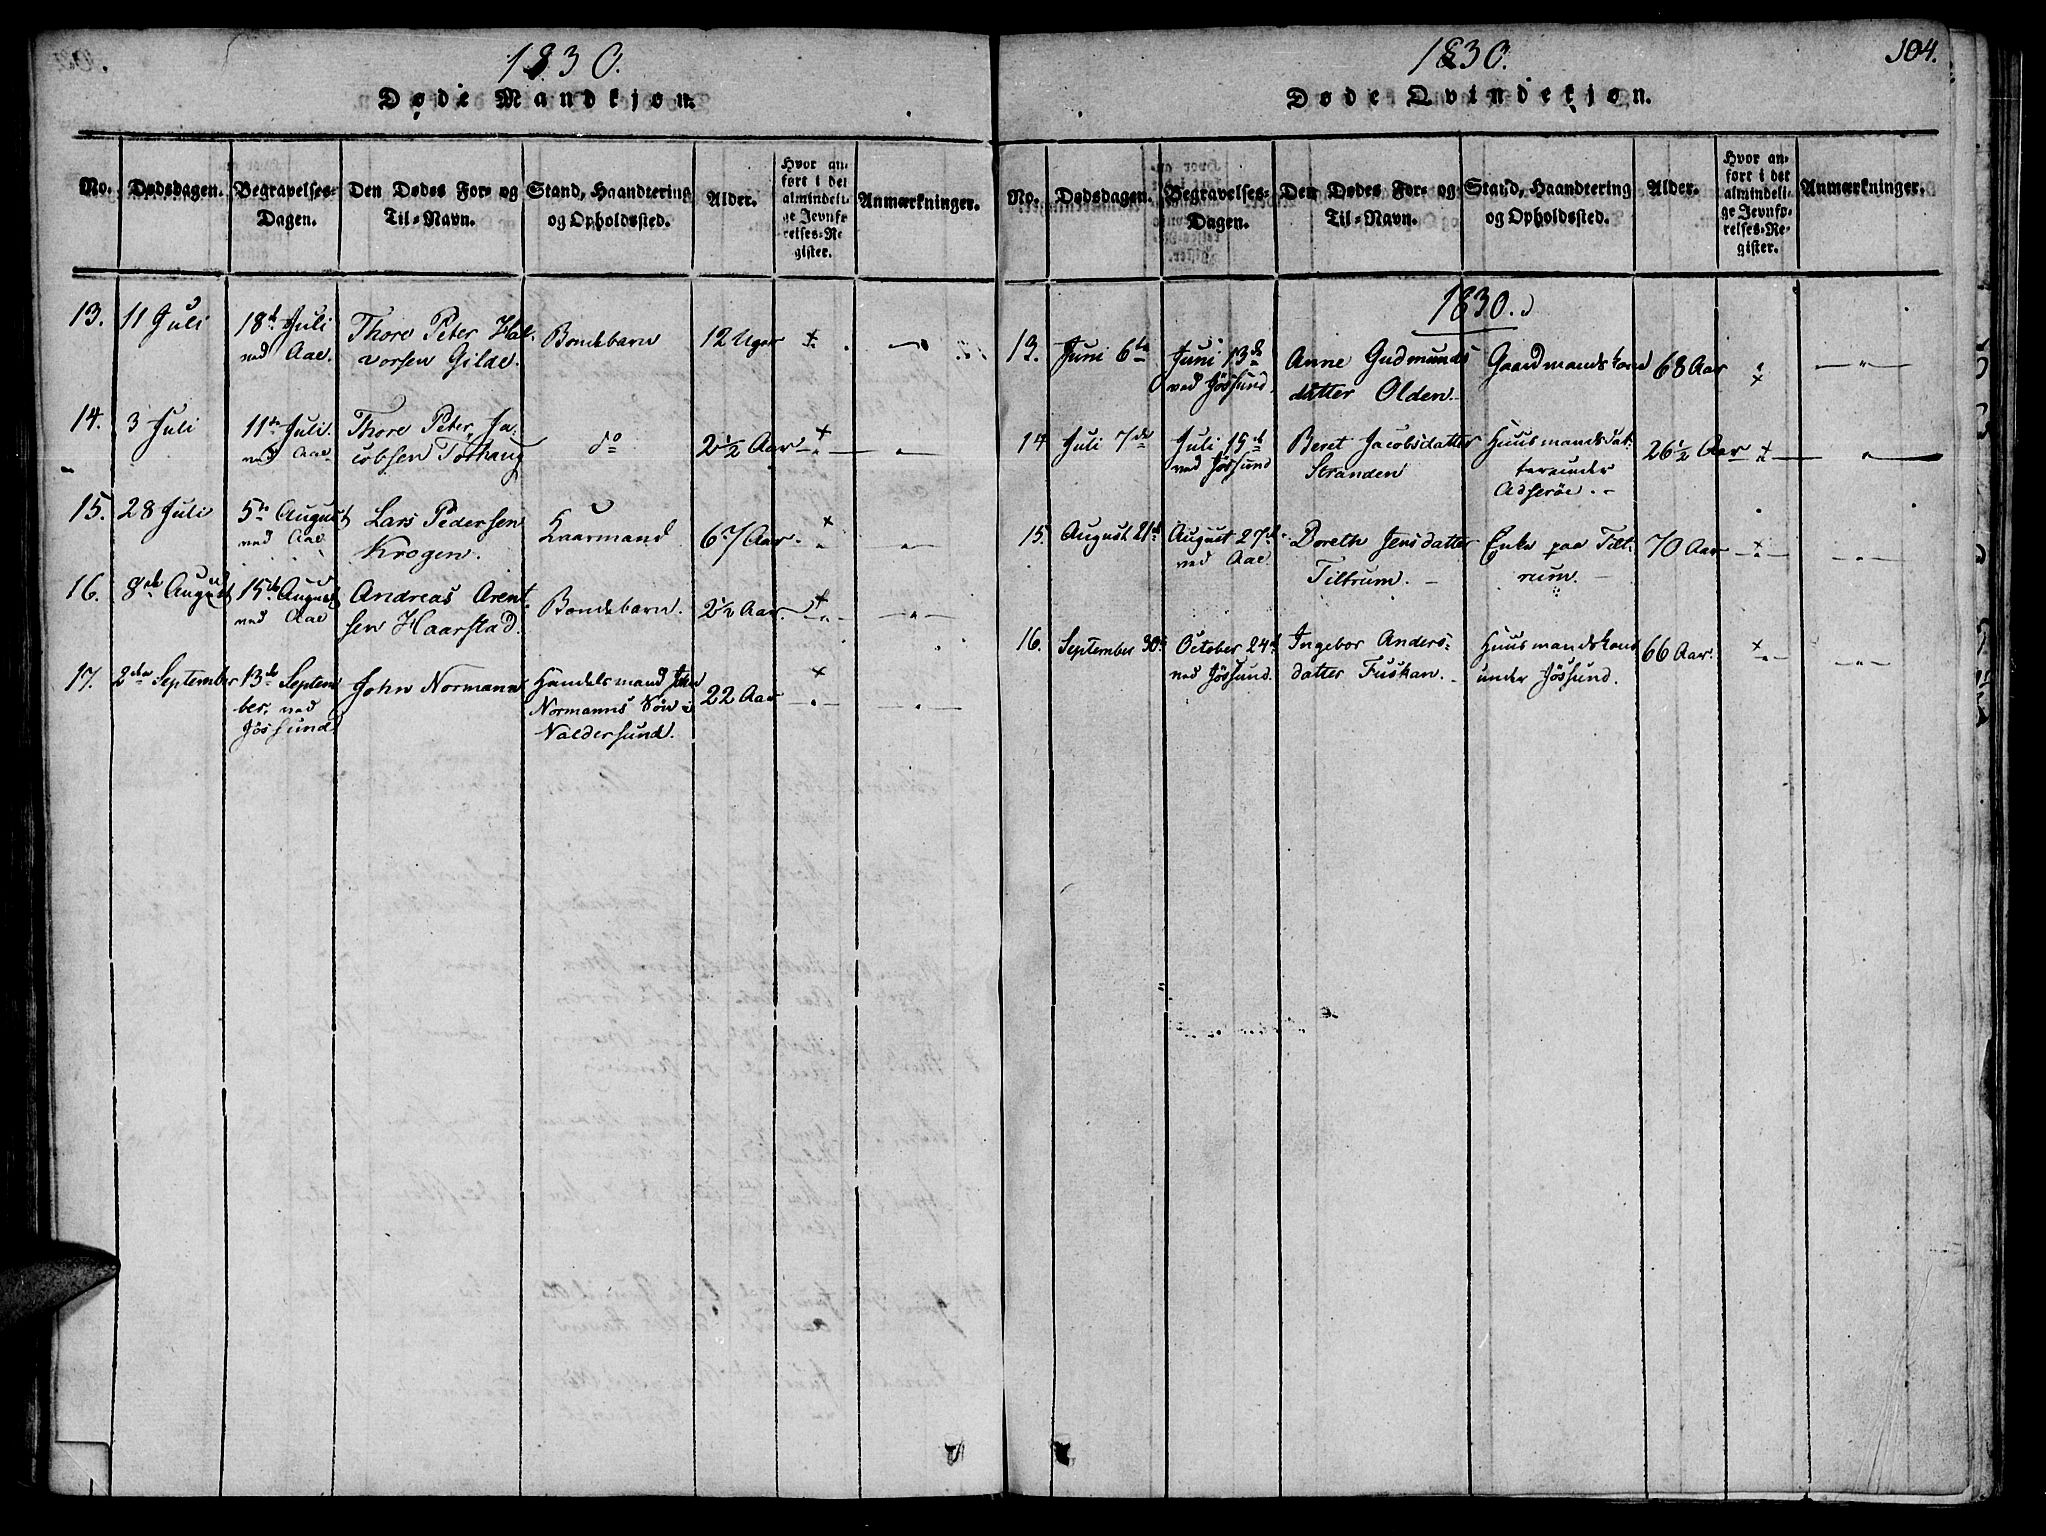 1830.
Døde Mandkjøn.
No. Dødsdagen. Begravelses-Dagen. Den Dødes For- og Til-Navn. Stand, Haandtering og Opholdssted. Alder. Hvor anført i det almindelige Jevnførelses-Register. Anmærkninger.
13. 11 Juli 18de Juli Thore Peter Hal- Bondebarn 12 Uger +
ved Aae. vorsen Gilde.
14. 3 Juli 11te Juli. Thore Peter Ja- do 2½ Aar +
ved Aae cobsen Torhaug
15. 28 Juli 5te August Lars Pedersen Kaarmand 67 Aar. +
ved Aae Krogen.
16. 8de August 15de August Andreas Arent Bondebarn. 2½ Aar. +
ved Aae sen Haarstad.
17. 2den September 13de Septem John Normann Handelsmand John 22 Aar +
ber. ved Normanns Søn i
Jøssund. Valdersund.
1830.
104.
Døde Qvindekjøn.
No. Dødsdagen. Begravelses-Dagen. Den Dødes For- og Til-Navn. Stand, Haandtering og Opholdssted. Alder. Hvor anført i det almindelige Jevnførelses-Register. Anmærkninger.
1830.
13. Juni 6te Juni 13de Anne Gudmunds Gaardmandskone 68 Aar +
ved Jøssund. datter Olden.
14 Juli 7de Juli 15de Beret Jacobsdatter Huusmandsdat- 26½ Aar +
ved Jøssund Stranden ter under
Adserøe.
15. August 21de August 27de Boreth Jensdatter Enke paa Tilt- 70 Aar +
ved Aae. Tiltrum. rum.
16. September 30te October 24de Ingebor Anders- Huusmandskone 66 Aar. +
ved Jøssund. datter Fuskan. under Jøssund.